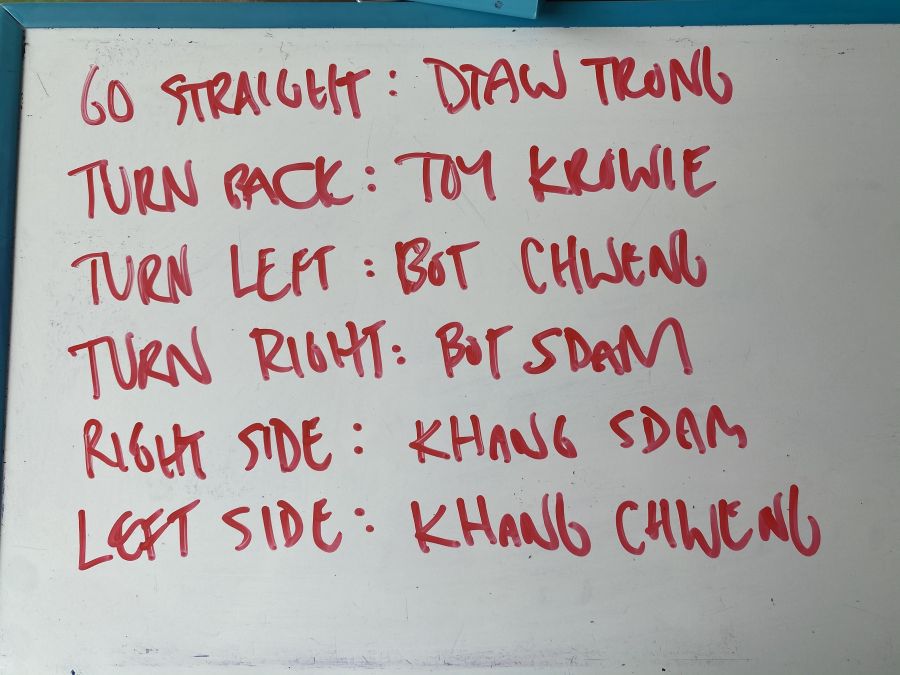 GO STRAIGHT : DTAW TRONG
TURN BACK : TOY KROWIE
TURN LEFT : BOT CHWENG
TURN RIGHT : BOT SDAM
RIGHT SIDE : KHANG SDAM
LEFT SIDE : KHANG CHWENG